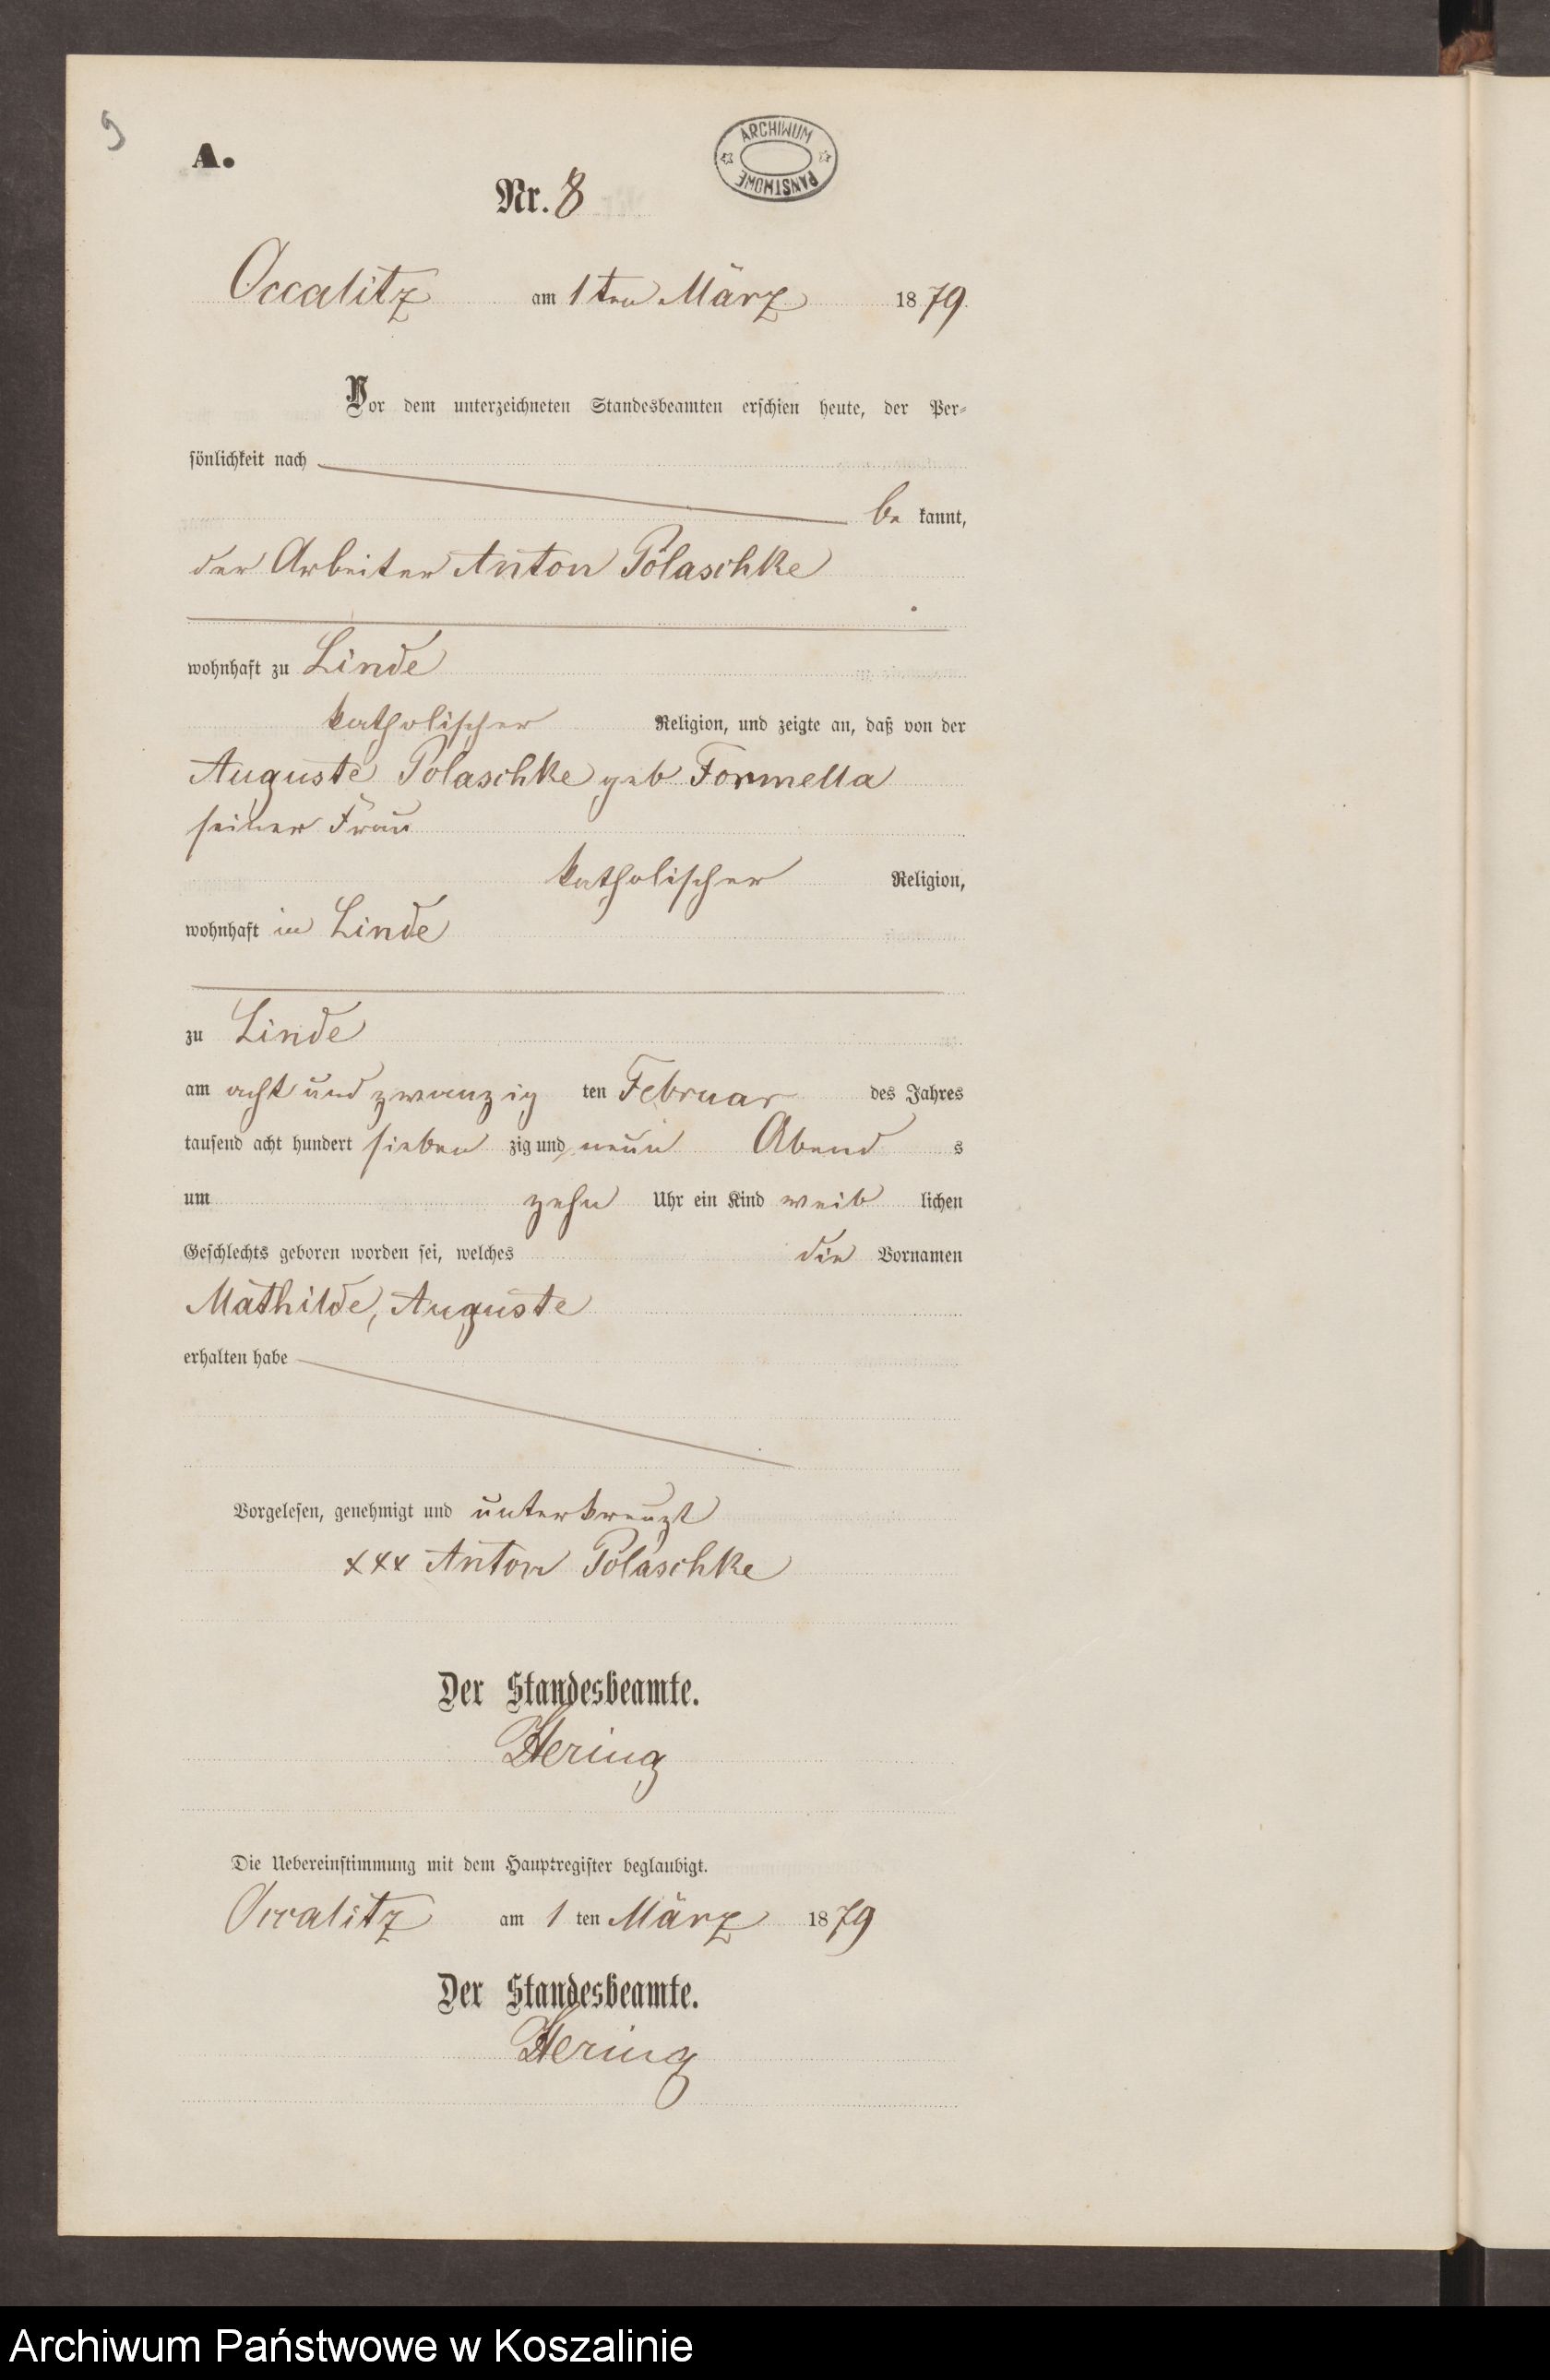 9
A.
ARCHIWUM PAŃSTWOWE
Nr. 8
Occalitz am 1ten März 1879.
Vor dem unterzeichneten Standesbeamten erschien heute, der Per-
sönlichkeit nach
be kannt,
der Arbeiter Anton Polaschke
wohnhaft zu Linde
katholischer Religion, und zeigte an, daß von der
Auguste Polaschke geb Formella
seiner Frau
katholischer Religion,
wohnhaft in Linde
zu Linde
am acht und zwanzig ten Februar des Jahres
tausend acht hundert sieben zig und neun Abend s
um zehn Uhr ein Kind weib lichen
Geschlechts geboren worden sei, welches die Vornamen
Mathilde, Auguste
erhalten habe
Vorgelesen, genehmigt und unterkreuzt
xxx Anton Polaschke
Der Standesbeamte.
Hering
Die Uebereinstimmung mit dem Hauptregister beglaubigt.
Occalitz am 1 ten März 1879
Der Standesbeamte.
Hering
Archiwum Państwowe w Koszalinie